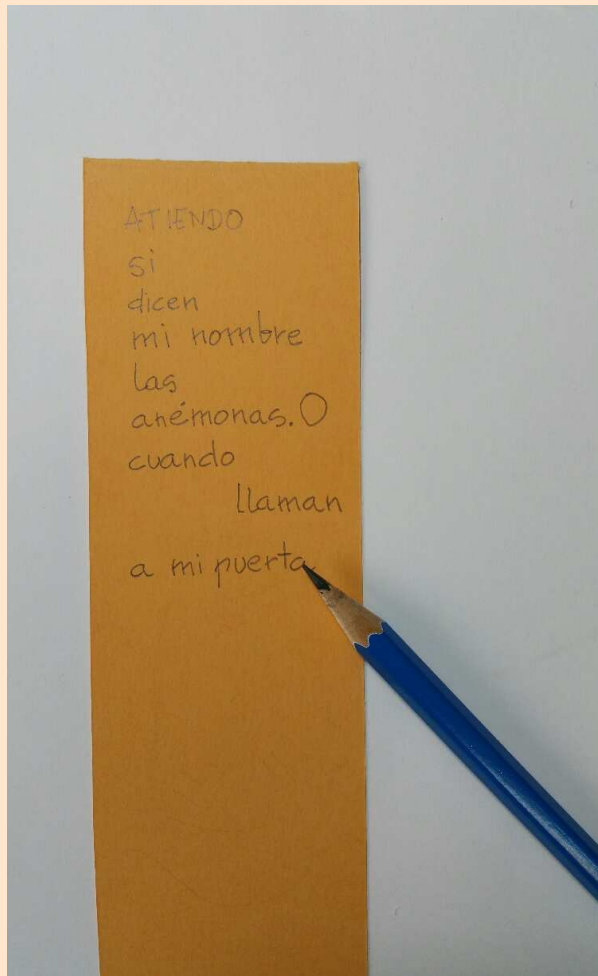 ATIENDO
si
dicen
mi nombre
las
anémonas. O
cuando
llaman
a mi puerta